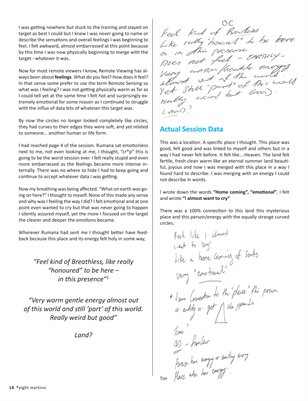 I was getting nowhere but stuck to the training and stayed on
target as best I could but I knew I was never going to name or
describe the sensations and overall feelings I was beginning to
feel. I felt awkward, almost embarrassed at this point because
by this time I was now physically beginning to merge with the
target - whatever it was.
Now for most remote viewers I know, Remote Viewing has al-
ways been about feelings. What do you feel? How does it feel?
In that sense some prefer to use the term Remote Sensing so
what was I feeling? I was not getting physically warm as far as
I could tell yet at the same time I felt hot and surprisingly ex-
tremely emotional for some reason as I continued to struggle
with the influx of data bits of whatever this target was.
By now the circles no longer looked completely like circles,
they had curves to their edges they were soft, and yet related
to someone... another human or life form.
I had reached page 4 of the session. Rumana sat emotionless
next to me, not even looking at me, I thought, "cr*p" this is
going to be the worst session ever. I felt really stupid and even
more embarrassed as the feelings became more intense in-
ternally. There was no where to hide I had to keep going and
continue to accept whatever data I was getting.
Now my breathing was being affected. "What on earth was go-
ing on here?" I thought to myself. None of this made any sense
and why was I feeling the way I did? I felt emotional and at one
point even wanted to cry but that was never going to happen
I silently assured myself, yet the more I focused on the target
the clearer and deeper the emotions became.
Wherever Rumana had sent me I thought better have feed-
back because this place and its energy felt holy in some way,
"Feel kind of Breathless, like really
"honoured" to be here –
in this presence"
"Very warm gentle energy almost out
of this world and still 'part' of this world.
Really weird but good"
Land?
14 *eight martinis
OC
Feel kind of Breathless
like really "honoured" to be here
in this presence
Does not feel - energy -
Very warm gentle energy
almost out of this world
Yet still part of this world
really weird but Good.
Land?
Actual Session Data
This was a location. A specific place I thought. This place was
good, felt good and was linked to myself and others but in a
way I had never felt before. It felt like...Heaven. The land felt
fertile, fresh clean warm like an eternal summer land beauti-
ful, joyous and now I was merged with this place in a way I
found hard to describe. I was merging with an energy I could
not describe in words.
I wrote down the words "Home coming", "emotional", I felt
and wrote "I almost want to cry"
There was a 100% connection to this land this mysterious
place and this person/energy with the equally strange curved
circles.
Feel like I almost
want to "cry"
like a home coming of sorts
very "emotional"